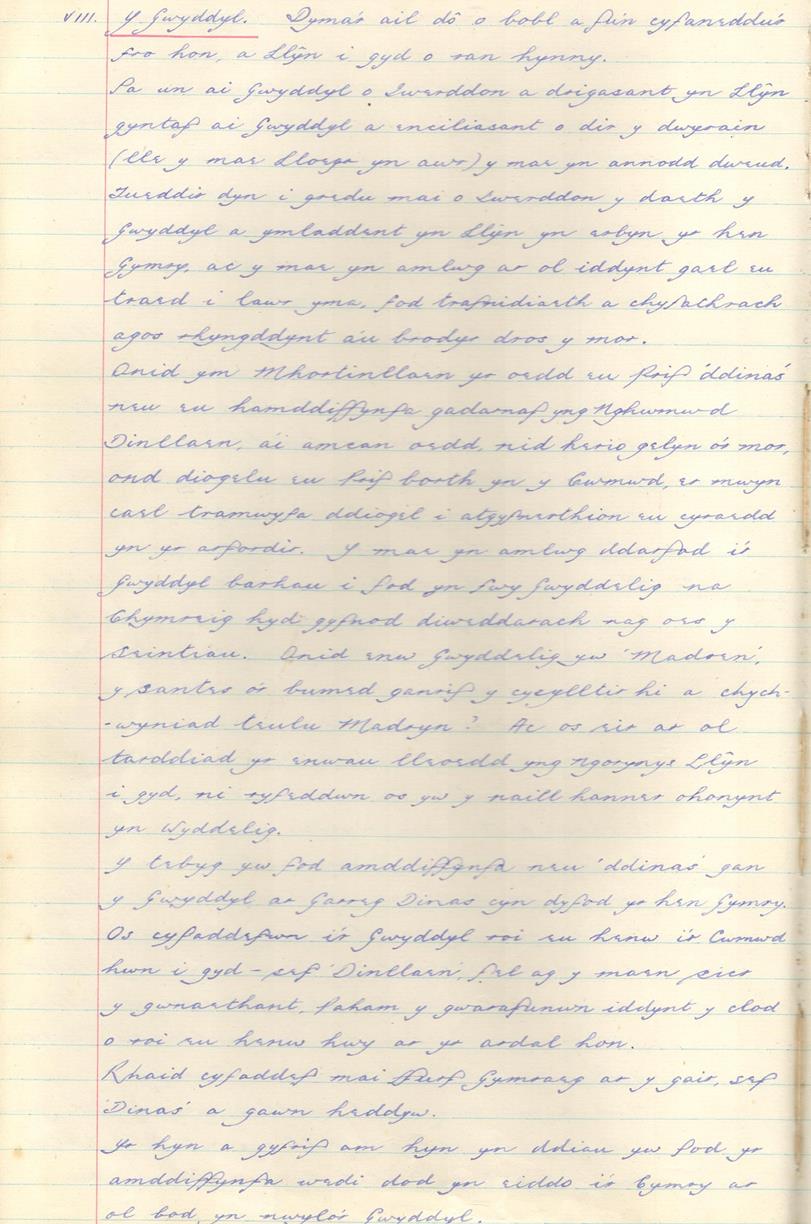 VIII. Y Gwyddyl. Dyma'r ail dô o bobl a fu'n cyfaneddu'r
fro hon, a Llŷn i gyd o ran hynny.
Pa un ai Gwyddyl o Iwerddon a drigasant yn Llŷn
gyntaf ai Gwyddyl a enciliasant o dir y dwyrain
(lle y mae Lloegr yn awr) y mae yn annodd dweud.
Tueddir dyn i gredu mai o Iwerddon y daeth y
Gwyddyl a ymladdent yn Llŷn yn erbyn yr hen
Gymry, ac y mae yn amlwg ar ol iddynt gael eu
traed i lawr yma, fod trafnidiaeth a chyfathrach
agos rhyngddynt a'u brodyr dros y mor.
Onid ym Mhortinllaen yr oedd eu prif 'ddinas'
neu eu hamddiffynfa gadarnaf yng Nghwmwd
Dinllaen, a'i amcan oedd, nid herio gelyn o'r mor,
ond diogelu eu prif borth yn y Cwmwd, er mwyn
cael tramwyfa ddiogel i atgyfnerthion eu cyraedd
yn yr arfordir. Y mae yn amlwg ddarfod i'r
Gwyddyl barhau i fod yn fwy Gwyddelig na
Chymreig hyd gyfnod diweddarach nag oes y
Seintiau. Onid enw Gwyddelig yw 'Madren',
y santes o'r bumed ganrif y cysylltir hi a chych-
-wyniad teulu Madryn? Ac os eir ar ol
tarddiad yr enwau lleoedd yng Ngorynys Llŷn
i gyd, ni ryfeddwn os yw y naill hanner ohonynt
yn Wyddelig.
Y tebyg yw fod amddiffynfa neu 'ddinas' gan
y Gwyddyl ar Garreg Dinas cyn dyfod yr hen Gymry.
Os cyfaddefwn i'r Gwyddyl roi eu henw i'r Cwmwd
hwn i gyd – sef 'Dinllaen', fel ag y maen sicr
y gwnaethant, paham y gwarafunwn iddynt y clod
o roi eu henw hwy ar yr ardal hon.
Rhaid cyfaddef mai ffurf Gymraeg ar y gair, sef
'Dinas' a gawn heddyw.
Yr hyn a gyfrif am hyn yn ddiau yw fod yr
amddiffynfa wedi dod yn eiddo i'r Cymry ar
ol bod yn nwylo'r Gwyddyl.